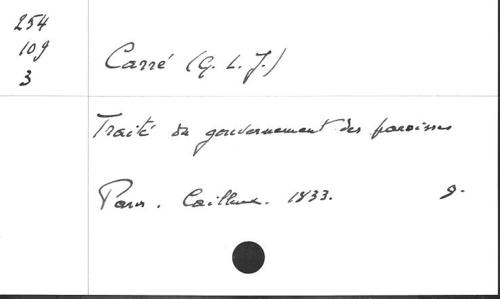 254
109
3
Carré (G. L. J.)
Traité du gouvernement des paroisses
Paris. Caillieux. 1833. 8.